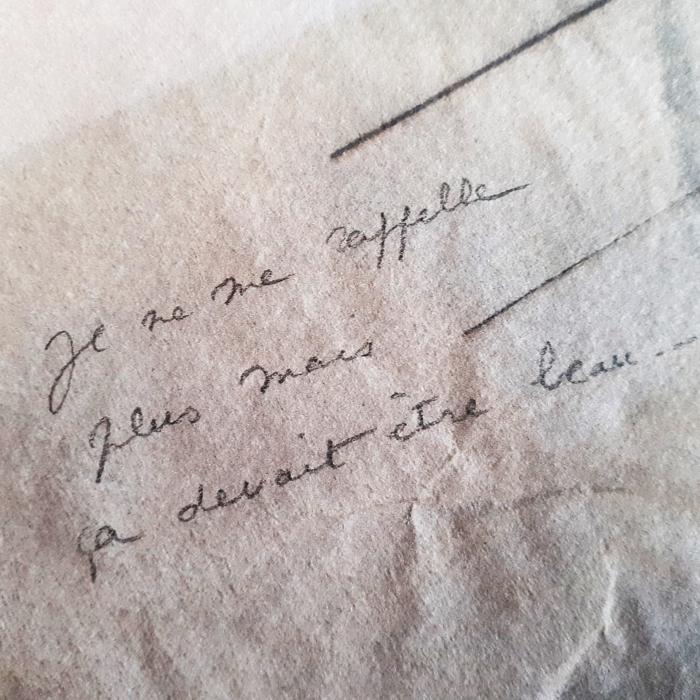 Je ne me rappelle
plus mais
ça devait être beau...